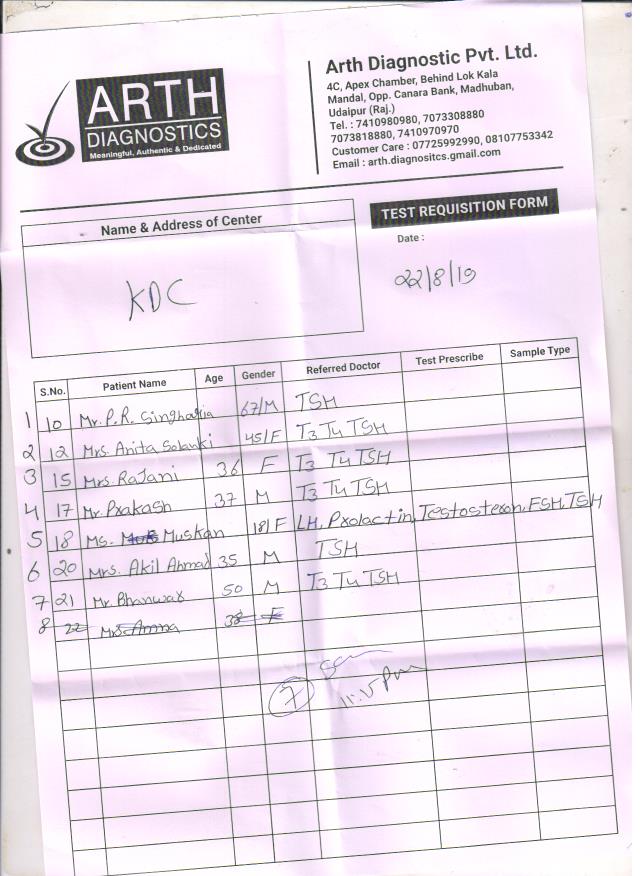 ARTH
DIAGNOSTICS
Meaningful, Authentic & Dedicated
Arth Diagnostic Pvt. Ltd.
4C, Apex Chamber, Behind Lok Kala
Mandal, Opp. Canara Bank, Madhuban,
Udaipur (Raj.)
Tel. : 7410980980, 7073308880
7073818880, 7410970970
Customer Care : 07725992990, 08107753342
Email : arth.diagnositcs.gmail.com
Name & Address of Center
KDC
TEST REQUISITION FORM
Date :
22/8/19
S.No. Patient Name Age Gender Referred Doctor Test Prescribe Sample Type
1 10 Mr. P.R. Singharia 67/M TSH
2 12 Mrs. Anita Solanki 45/F T3 T4 TSH
3 15 Mrs. Rajani 36 F T3 T4 TSH
4 17 Mr. Prakash 37 M T3 T4 TSH
5 18 Ms. Muskan 18/F LH, Prolactin, Testosteron, FSH, TSH
6 20 Mrs. Akil Ahmad 35 M TSH
7 21 Mr. Bhanwar 50 M T3 T4 TSH
8 22 Mrs. Amna 38 F
7
11:15 Pm